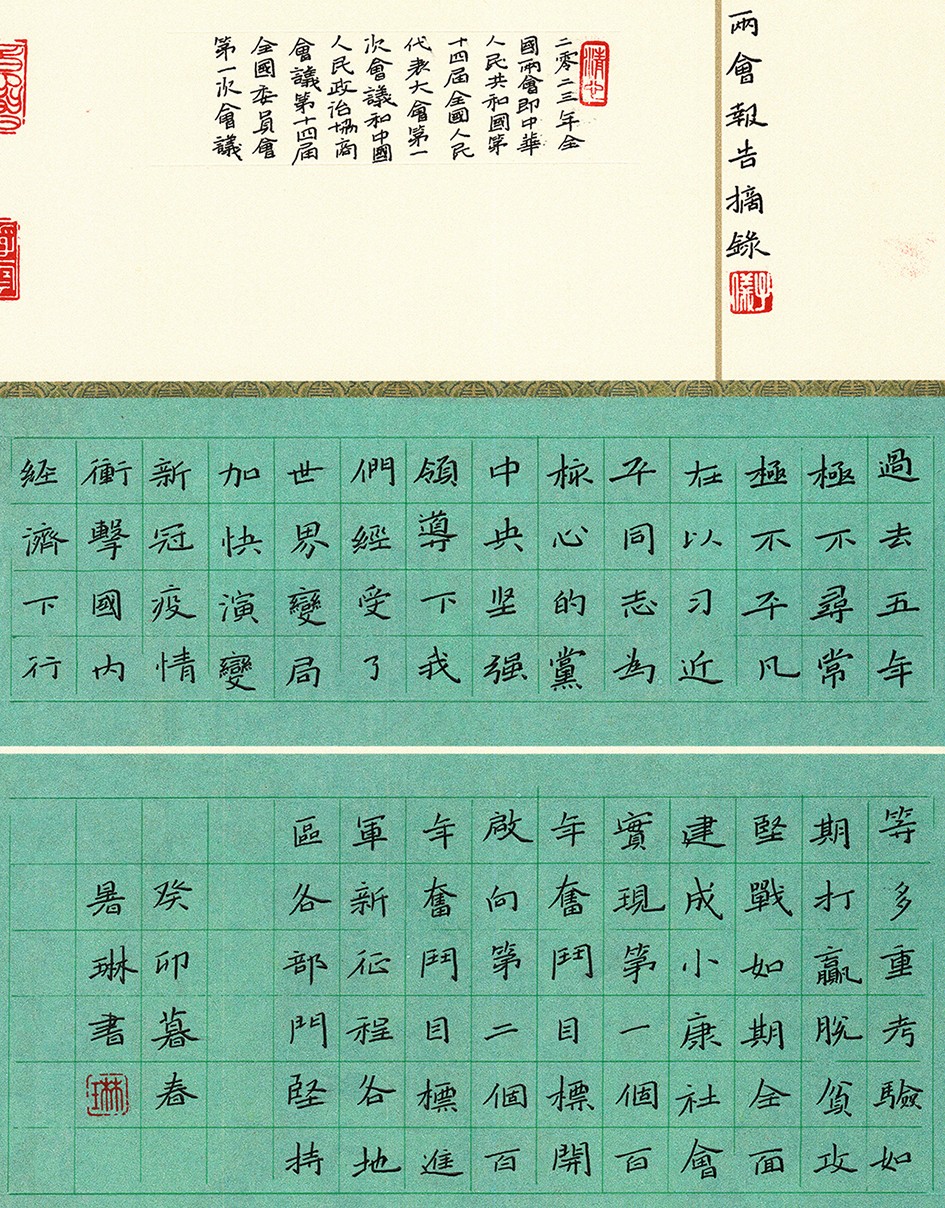 兩會報告摘錄
子儀
清也
二零二三年全
國兩會即中華
人民共和國第
十四屆全國人民
代表大會第一
次會議和中國
人民政治協商
會議第十四屆
全國委員會
第一次會議
過去五年
極不尋常
極不平凡
在以习近
平同志為
核心的黨
中央坚强
領導下我
們經受了
世界變局
加快演變
新冠疫情
衝擊國内
經濟下行
等多重考驗如
期打贏脫貧攻
堅戰如期全面
建成小康社會
實現第一個百
年奮鬥目標開
啟向第二個百
年奮鬥目標進
軍新征程各地
區各部門堅持
癸卯暮春
暑琳書
琳